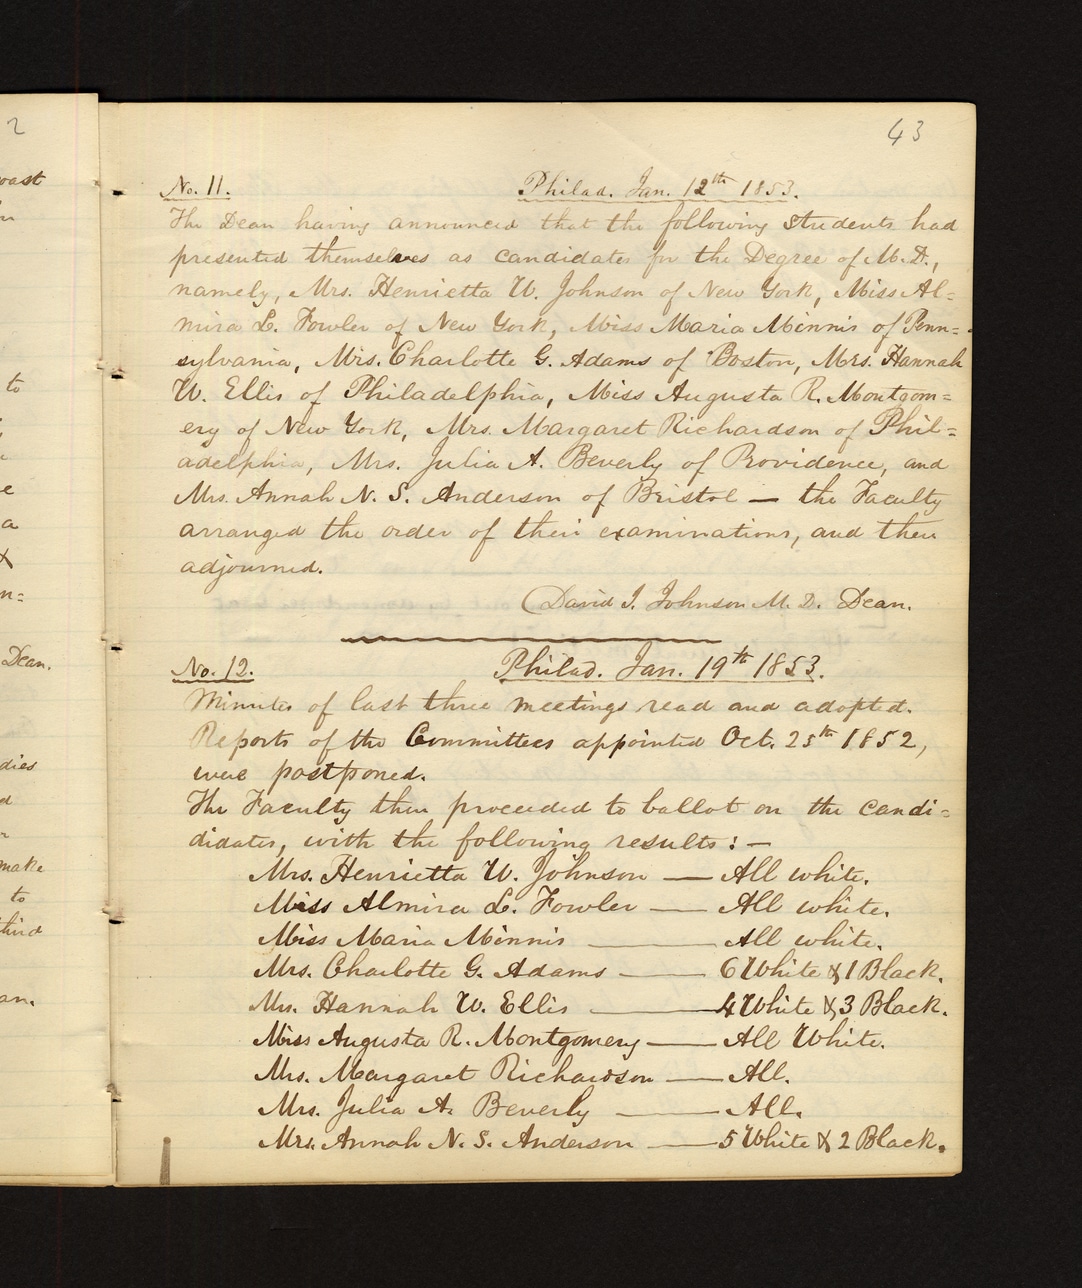 2
oast
to
e
a
&
n=
Dean.
dies
d
r
make
to
third
an.
43
No. 11. Philad. Jan. 12th 1853.
The Dean having announced that the following students had
presented themselves as candidates for the Degree of M.D.,
namely, Mrs. Henrietta W. Johnson of New York, Miss Al=
mira L. Fowler of New York, Miss Maria Minnis of Penn=
sylvania, Mrs. Charlotte G. Adams of Boston, Mrs. Hannah
W. Ellis of Philadelphia, Miss Augusta R. Montgom=
ery of New York, Mrs. Margaret Richardson of Phil=
adelphia, Mrs. Julia A. Beverly of Providence, and
Mrs. Annah N. S. Anderson of Bristol — the Faculty
arranged the order of their examinations, and then
adjourned.
David J. Johnson M. D. Dean.
No. 12. Philad. Jan. 19th 1853.
Minutes of last three meetings read and adopted.
Reports of the Committees appointed Oct. 25th 1852,
were postponed.
The Faculty then proceeded to ballot on the candi=
didates, with the following results: —
Mrs. Henrietta W. Johnson — All white.
Miss Almira L. Fowler — All white.
Miss Maria Minnis — All white.
Mrs. Charlotte G. Adams — 6 White & 1 Black.
Mrs. Hannah W. Ellis — 4 White & 3 Black.
Miss Augusta R. Montgomery — All White.
Mrs. Margaret Richardson — All.
Mrs. Julia A. Beverly — All.
Mrs. Annah N. S. Anderson — 5 White & 2 Black.